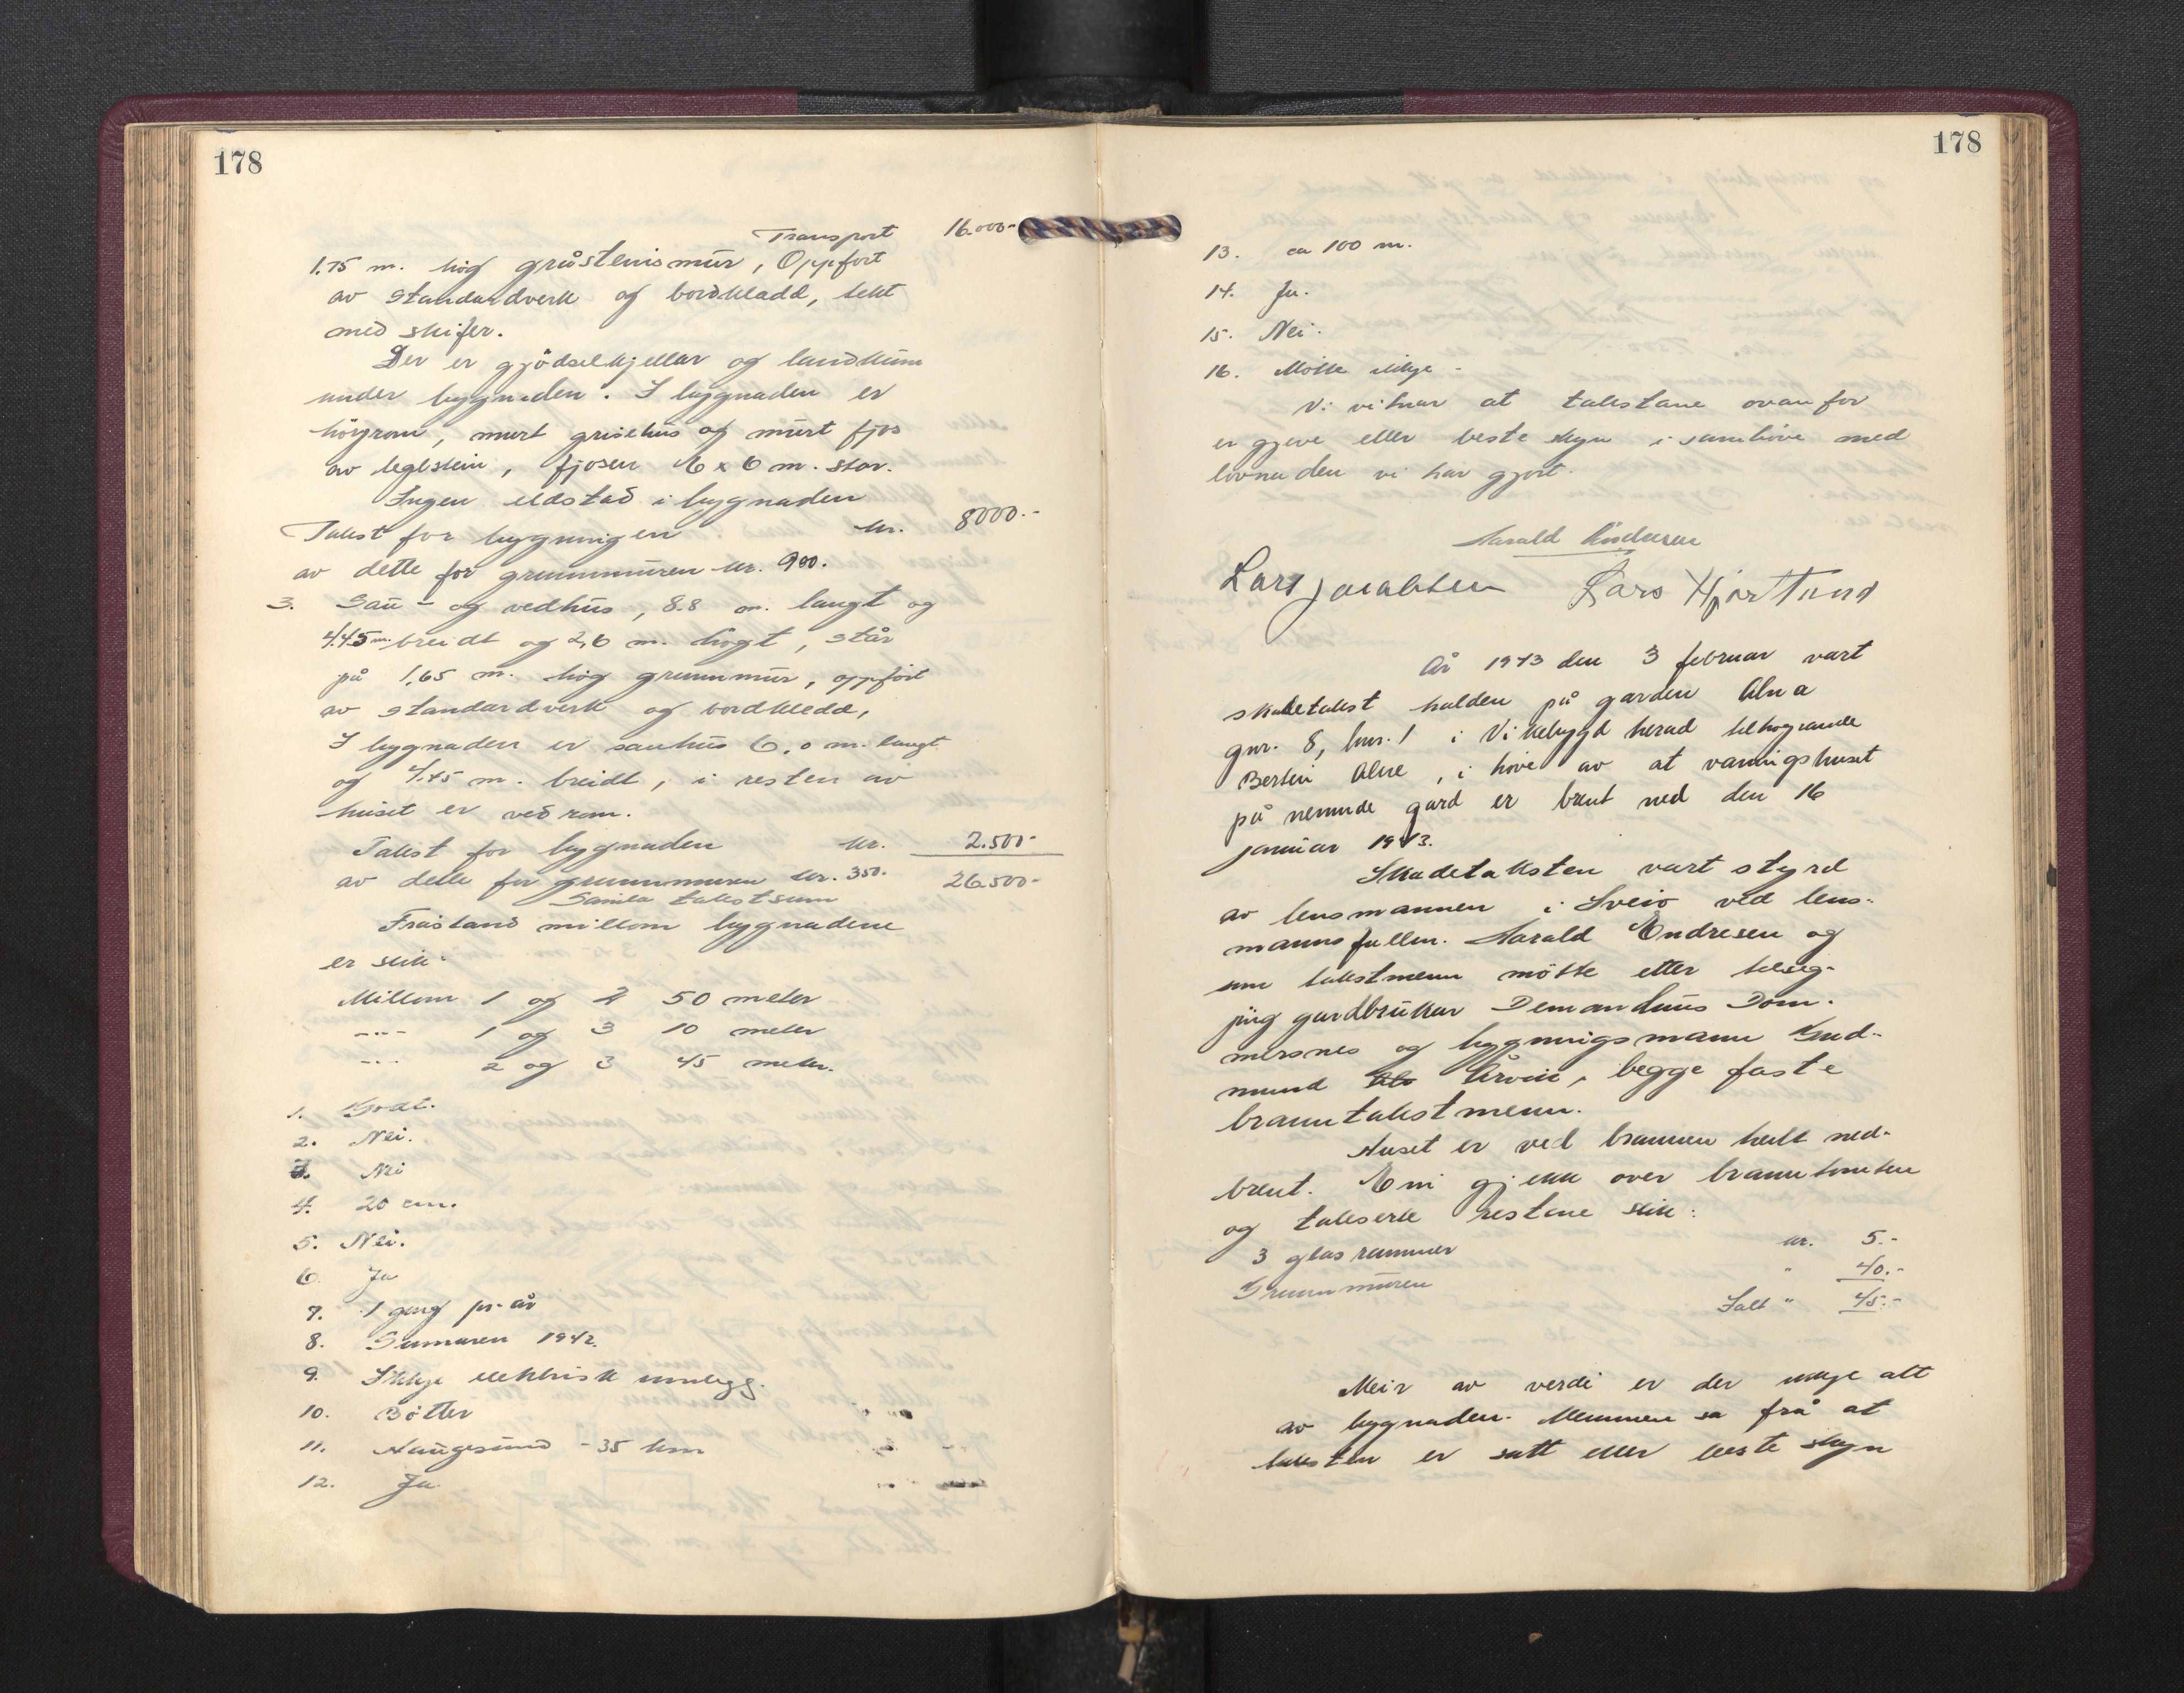 178
Transport 16.000-
1.75 m. høg gråsteinsmur, Oppført
av standardverk og bordkladd, tekt
med skifer.
Der er gjödselkjellar og landkum
under bygnaden. I bygnaden er
höyrom, murt grisehus og murt fjos
av teglstein, fjosen 6 x 6 m. stor.
Ingen eldstad i bygnaden
Takst for bygningen kr. 8000.-
av dette for grunnmuren kr. 900.
3. Sau- og vedhus, 8.8 m. langt og
4.45 m breidt og 2,6 m. högt, står
på 1,65 m. høg grunnmur, oppfört
av standardverk og bordkledd,
I bygnaden er sauhus 6,0 m. langt
og 4.45 m. breidt, i resten av
huset er vedrom.
Takst for bygnaden kr. 2.500-
av dette for grunnmuren kr. 350. 26.500-
Samla takstsum
Fråstand millom bygnadene
er slik:
Millom 1 og 2 50 meter
--- 1 og 3 10 meter
--- 2 og 3 45 meter.
1. Godt.
2. Nei.
3. Nei
4. 20 cm.
5. Nei.
6. Ja
7. 1 gong pr. år
8. Sumaren 1942.
9. Ikkje elektrisk innlegg.
10. Bøtter
11. Haugesund - 35 km
12. Ja
178
13. ca 100 m.
14. Ja.
15. Nei.
16. Møtte ikkje -
Vi vitnar at takstane ovanfor
er gjeve etter beste skyn i samhöve med
lovnaden vi har gjort.
Harald Endresen
Lars Jacobsen Lars Hjortland
År 1943 den 3 februar vart
skadetakst halden på garden Alna
gnr. 8, bnr. 1 i Vikebygd herad tilhøyrande
Bertin Alne, i höve av at vaningshuset
på nemnde gard er brent ned den 16
januar 1943.
Skadetaksten vart styrd
av lensmannen i Sveio ved lens-
mannsfullm. Harald Endresen og
som takstmenn møtte etter tilseg-
jing gardbrukar Demandius Dom-
mersnes og bygningsmann Gud-
mund Årvik, begge faste
branntakstmenn.
Huset er ved brannen heilt ned-
brent. Ein gjekk over branntomten
og takserte restane slik:
3 glas rammer kr. 5.-
Grunnmuren " 40.-
Ialt " 45.-
Meir av verdi er der ikkje att
av bygnaden. Mennene sa frå at
taksten er sett etter beste skyn